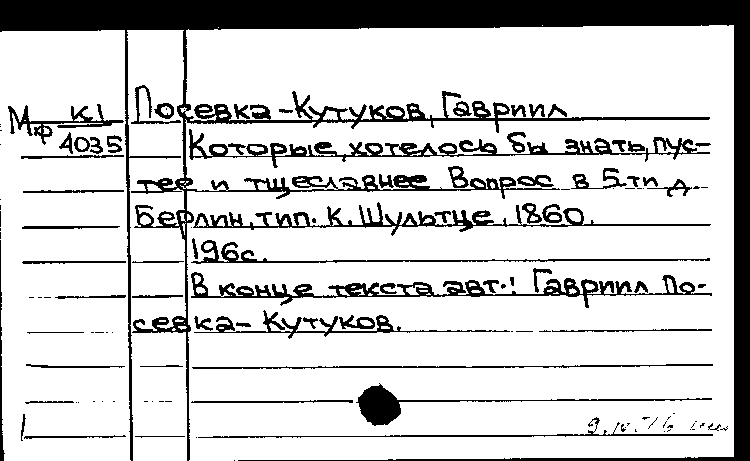 Мф К1/4035
Посевка-Кутуков, Гавриил
Которые, хотелось бы знать, пус-
тее и тщеславнее Вопрос в 5-ти д.
Берлин, тип. К. Шультце, 1860.
196с.
В конце текста авт.: Гавриил По-
севка-Кутуков.